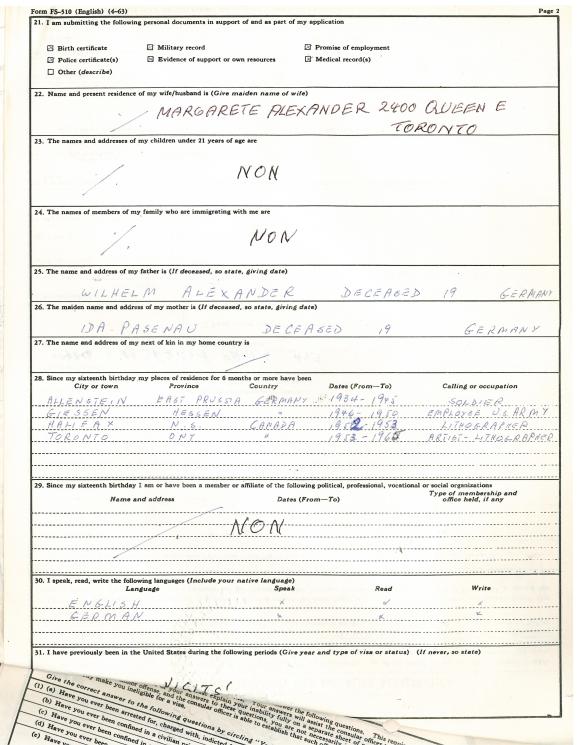 Form FS-510 (English) (4-63) Page 2
21. I am submitting the following personal documents in support of and as part of my application
Birth certificate Military record Promise of employment
Police certificate(s) Evidence of support or own resources Medical record(s)
Other (describe)
22. Name and present residence of my wife/husband is (Give maiden name of wife)
MARGARETE ALEXANDER 2400 QUEEN E
TORONTO
23. The names and addresses of my children under 21 years of age are
NON
24. The names of members of my family who are immigrating with me are
NON
25. The name and address of my father is (If deceased, so state, giving date)
WILHELM ALEXANDER DECEASED 19 GERMANY
26. The maiden name and address of my mother is (If deceased, so state, giving date)
IDA PASENAU DECEASED 19 GERMANY
27. The name and address of my next of kin in my home country is
28. Since my sixteenth birthday my places of residence for 6 months or more have been
City or town Province Country Dates (From—To) Calling or occupation
ALLENSTEIN EAST PRUSSIA GERMANY 1934-1945 SOLDIER
GIESSEN HESSEN " 1946-1950 EMPLOYEE U.S. ARMY
HALIFAX N.S. CANADA 1952-1953 LITHOGRAPHER
TORONTO ONT " 1953-1965 ARTIST-LITHOGRAPHER
29. Since my sixteenth birthday I am or have been a member or affiliate of the following political, professional, vocational or social organizations
Name and address Dates (From—To) Type of membership and office held, if any
NON
30. I speak, read, write the following languages (Include your native language)
Language Speak Read Write
ENGLISH x ✓ x
GERMAN x x x
31. I have previously been in the United States during the following periods (Give year and type of visa or status) (If never, so state)
make you ineligible for a visa.
Give the correct answer to the following questions by circling "Y
(1) (a) Have you ever been arrested for, charged with, indicted
(b) Have you ever been confined in a
(c) Have you ever been confined in a civilian
(d) Have you ever been
(e) Have you ever